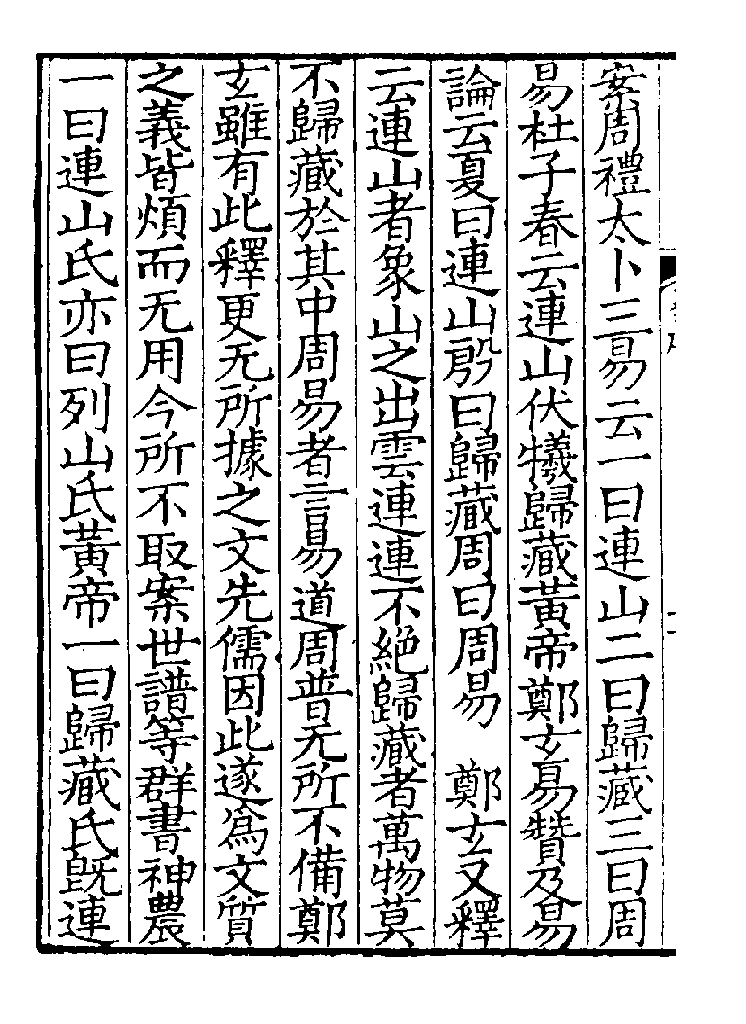 案周禮太卜三易云一曰連山二曰歸藏三曰周
易杜子春云連山伏犧歸藏黃帝鄭玄易贊及易
論云夏曰連山殷曰歸藏周曰周易　鄭玄又釋
云連山者象山之出雲連連不絕歸藏者萬物莫
不歸藏於其中周易者言易道周普无所不備鄭
玄雖有此釋更无所據之文先儒因此遂爲文質
之義皆煩而无用今所不取案世譜等群書神農
一曰連山氏亦曰列山氏黃帝一曰歸藏氏既連